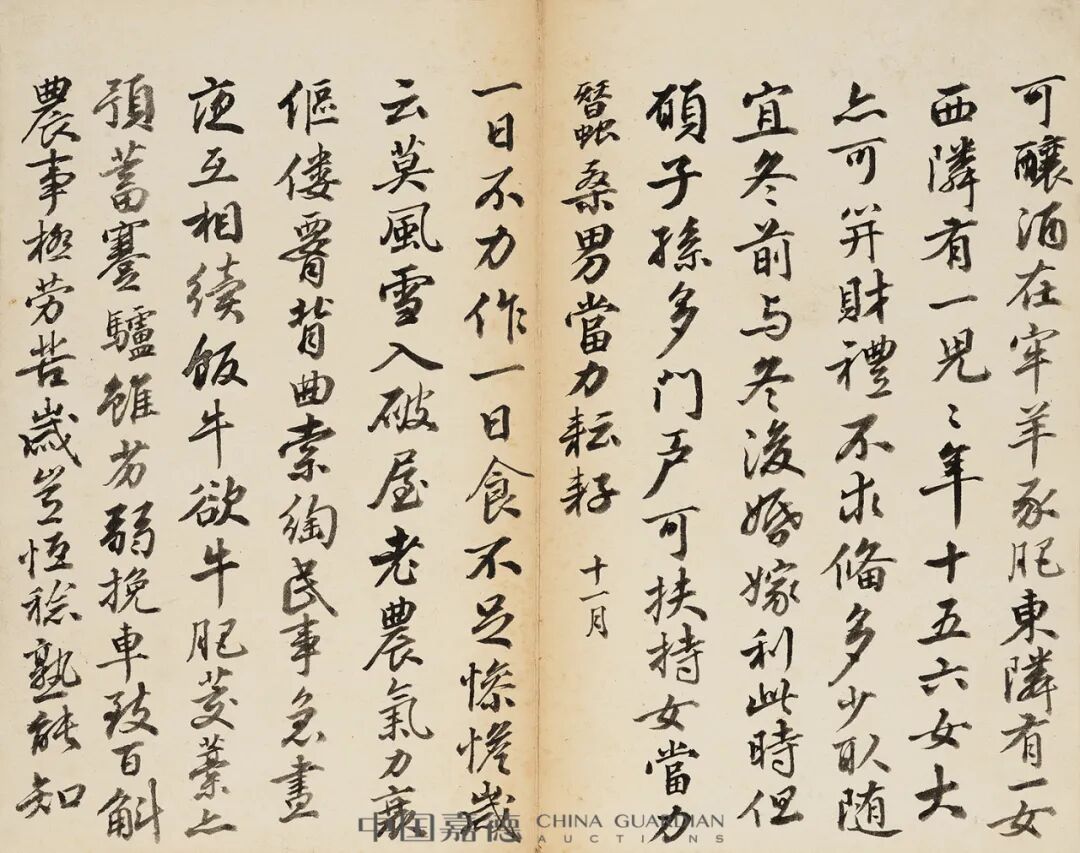 可釀酒在牢羊豕肥東隣有一女
西隣有一兒〻年十五六女大
亦可笄財禮不求備多少取随
宜冬前与冬後婚嫁利此時但
願子孫多門戶可扶持女當力
蠶桑男當力耘耔 十一月
一日不力作一日食不足惨憺歲
云莫風雪入破屋老農氣力衰
傴僂腰背曲索綯民事急晝
夜互相續飯牛欲牛肥茭藁亦
預蓄蹇驢雖劣弱挽車致百斛
農事極劳苦歲豈恆稔熟能知
中国嘉德 CHINA GUARDIAN
AUCTIONS